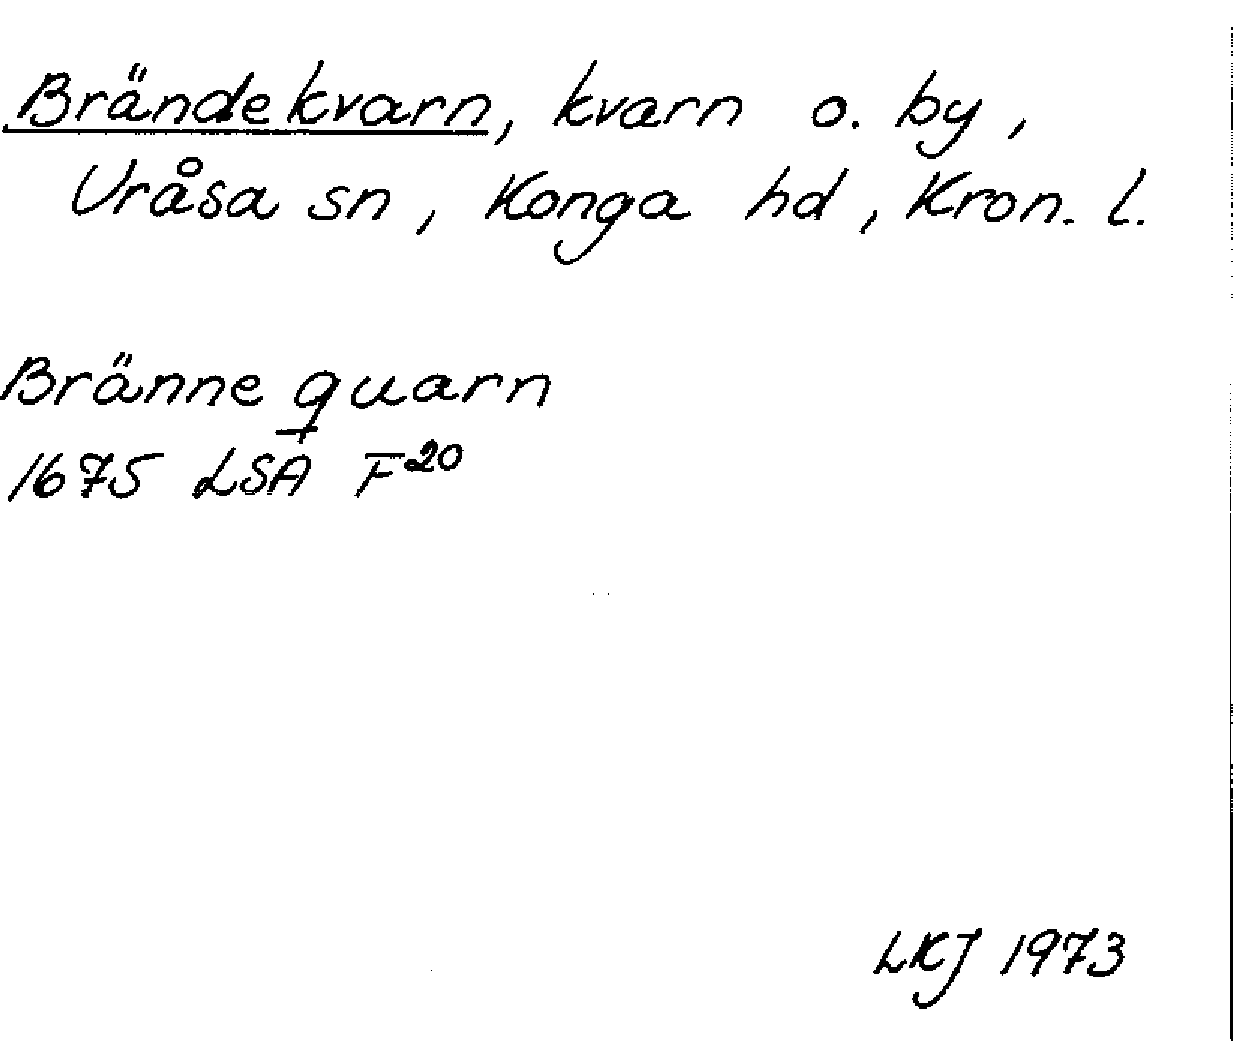 Brändekvarn, kvarn o. by,
Uråsa sn, Konga hd, Kron. l.
Bränne quarn
1675 LSA F20
LKJ 1973